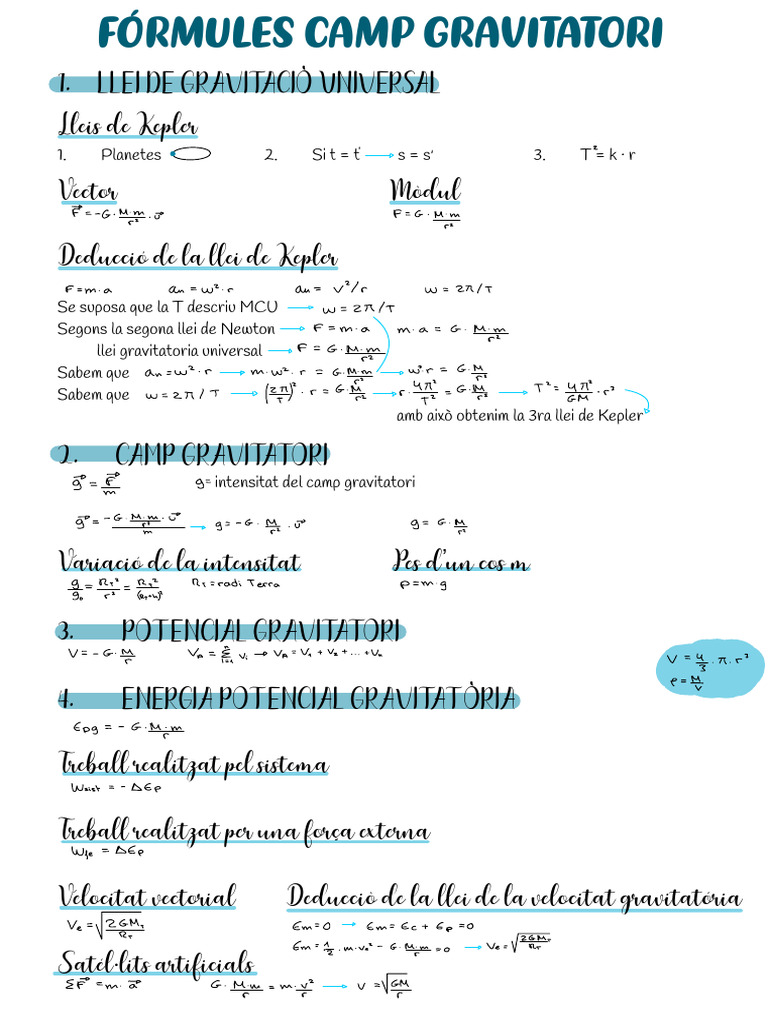 FÓRMULES CAMP GRAVITATORI
1. LLEI DE GRAVITACIÒ UNIVERSAL
Lleis de Kepler
1. Planetes 2. Si t = t' → s = s' 3. T² = k · r
Vector Mòdul
F⃗ = -G · M·m/r² · u⃗ F = G · M·m/r²
Deducció de la llei de Kepler
F = m·a an = w²·r an = v²/r w = 2π/T
Se suposa que la T descriu MCU → w = 2π/T
Segons la segona llei de Newton → F = m·a m·a = G · M·m/r²
llei gravitatoria universal → F = G · M·m/r²
Sabem que an = w²·r → m·w²·r = G·M·m/r² → w²r = G·M/r²
Sabem que w = 2π/T → (2π/T)² · r = G·M/r² → r · 4π²/T² = G·M/r² → T² = 4π²/GM · r³
amb això obtenim la 3ra llei de Kepler
2. CAMP GRAVITATORI
g⃗ = F⃗/m g = intensitat del camp gravitatori
g⃗ = (-G · M·m/r² · u⃗)/m → g = -G · M/r² · u⃗ g = G · M/r²
Variació de la intensitat Pes d'un cos m
g/g₀ = RT²/r² = RT²/(RT+h)² RT = radi Terra P = m·g
3. POTENCIAL GRAVITATORI
V = -G · M/r VA = Σ(i=1, n) Vi → VA = V1 + V2 + ... + Vn
V = 4/3 · π · r³
ρ = M/V
4. ENERGIA POTENCIAL GRAVITATÒRIA
Epg = -G · M·m/r
Treball realitzat pel sistema
Wsist = -ΔEp
Treball realitzat per una força externa
Wfe = ΔEp
Velocitat vectorial Deducció de la llei de la velocitat gravitatória
Ve = √(2GMT/RT) Em = 0 → Em = Ec + Ep = 0
Em = 1/2 · m·ve² - G·M·m/r = 0 → Ve = √(2GMT/RT)
Satél·lits artificials
ΣF⃗ = m · a⃗ G · M·m/r² = m · v²/r → v = √(GM/r)